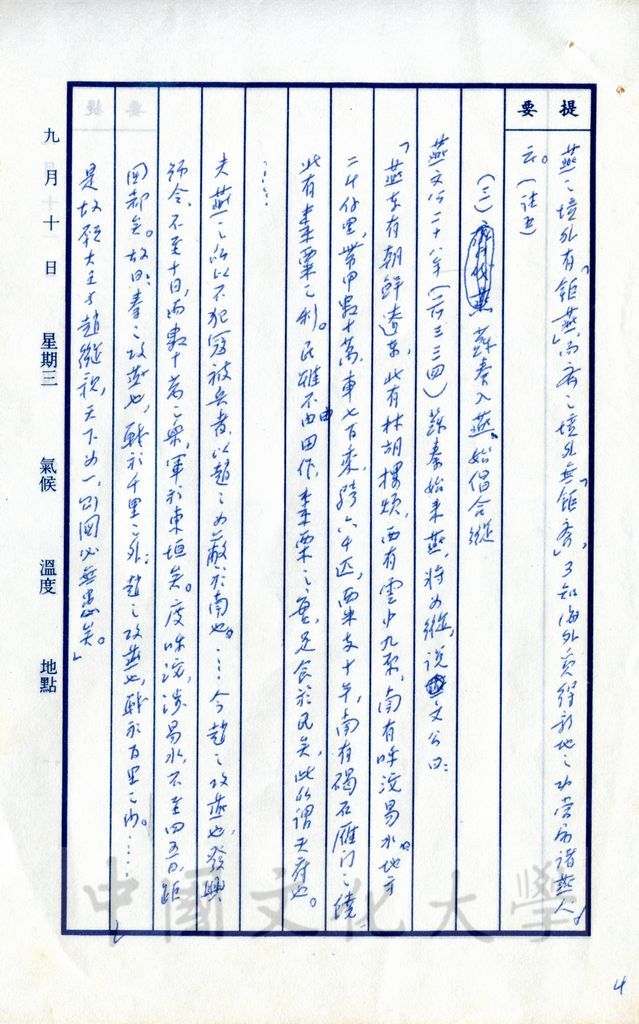 提要
燕之境外有「鉅燕」,而齊之境外無「鉅齊」,可知海外負得新地之功當屬諸燕人
云。(註五)
(三) 蘇秦入燕,始倡合縱
燕文公二十八年(前三三四)蘇秦始來燕,將為縱,說文公曰:
「燕東有朝鮮遼東,北有林胡樓煩,西有雲中九原,南有呼沱易水,地方
二千余里,帶甲數十萬,車七百乘,騎六千匹,粟支十年,南有碣石雁门之饒
北有棗栗之利。民雖不由田作,棗栗之實,足食於民矣,此所謂天府也。
……
夫燕之所以不犯寇被兵者,以趙之為蔽於南也。……今趙之攻燕也,發興
师令,不至十日,而數十萬之眾,軍於東垣矣。度呼沱,涉易水,不至四五日,距
囯都矣。故曰:秦之攻燕也,戰於千里之外;趙之攻燕也,戰於百里之內。……
是故願大王与趙縱親,天下為一,則國必無患矣。」
九月十日 星期三 氣候 溫度 地點
中國文化大學
4